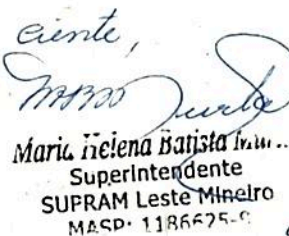 Ciente,
Maria Helena Batista
Superintendente
SUPRAM Leste Mineiro
MASP: 1186625-